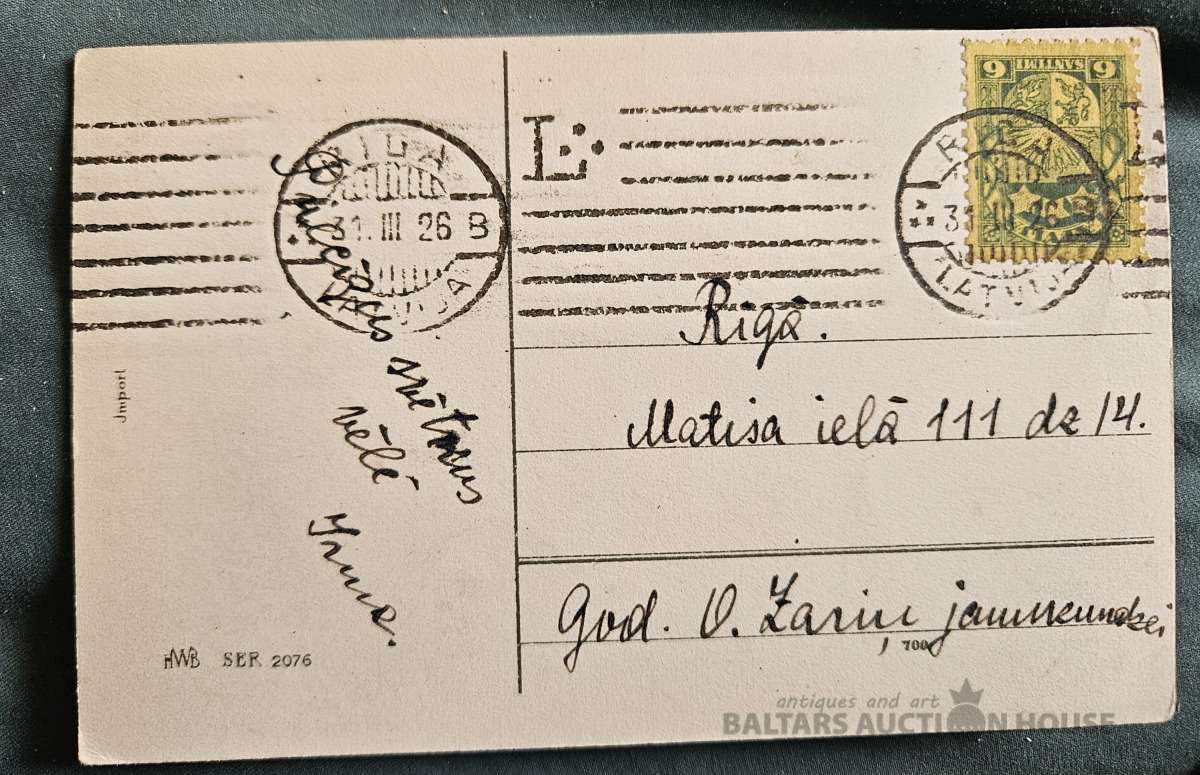 RIGA
31. III 26 B
LATVIJA
E.
6 SANTIMI 6
RIGA
31. III 26 B
LATVIJA
Priecīgus svētkus
vēlē
Irma.
Rīgā.
Matisa ielā 111 dz 14.
God. O. Zariņ jaunkundzei
700
Import
HWB SER. 2076
antiques and art
BALTARS AUCTION HOUSE